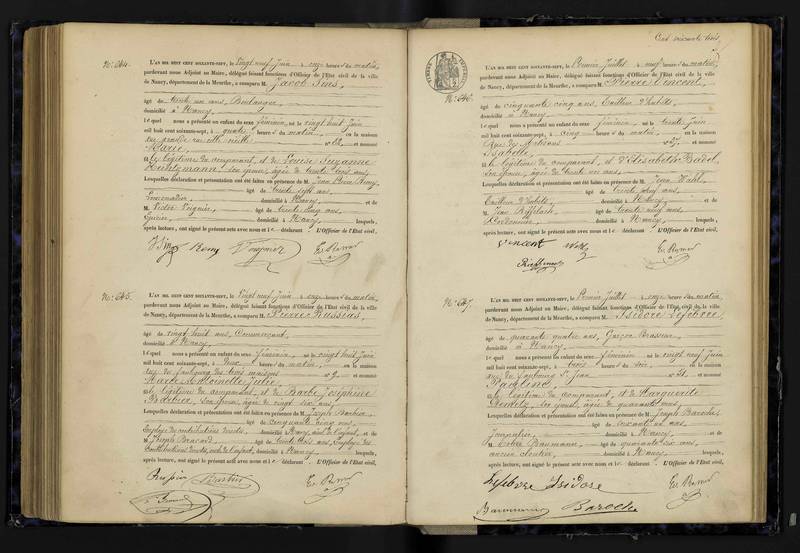 N° 644.
L'AN MIL HUIT CENT SOIXANTE-SEPT, le vingt neuf Juin à onze heures du matin,
pardevant nous Adjoint au Maire, délégué faisant fonctions d'Officier de l'Etat civil de la ville
de Nancy, département de la Meurthe, a comparu M. Jacob
âgé de trente un ans, Boulanger,
domicilié à Nancy,
lequel nous a présenté un enfant du sexe féminin, né le vingt huit Juin
mil huit cent soixante-sept, à quatre heures du matin, en la maison
rue grande rue ville vieille n° 12, et nommé
Marie,
fille légitime du comparant, et de Louise Suzanne
son épouse, âgée de trente trois ans,
Lesquelles déclaration et présentation ont été faites en présence de M. Jean Remy,
âgé de trente sept ans,
domicilié à Nancy, et de
M. Victor âgé de trente cinq ans,
domicilié à Nancy lesquels,
après lecture, ont signé le présent acte avec nous et le déclarant. L'Officier de l'Etat civil,
Remy
N° 645.
L'AN MIL HUIT CENT SOIXANTE-SEPT, le vingt neuf Juin à onze heures du matin,
pardevant nous Adjoint au Maire, délégué faisant fonctions d'Officier de l'Etat civil de la ville
de Nancy, département de la Meurthe, a comparu M. Pierre
âgé de vingt huit ans, Commerçant,
domicilié à Nancy,
lequel nous a présenté un enfant du sexe féminin, né le vingt huit Juin
mil huit cent soixante-sept, à heures du matin, en la maison
rue du faubourg des trois maisons n° 9 et nommé
Marie Antoinette Julie,
fille légitime du comparant, et de Barbe Joséphine
Barbier, son épouse, âgée de vingt six ans,
Lesquelles déclaration et présentation ont été faites en présence de M. Joseph Barbier,
âgé de cinquante cinq ans,
domicilié à Nancy, aïeul de l'enfant, et de
M. Joseph âgé de trente trois ans, Employé des
Contributions directes, oncle de l'enfant, domicilié à Nancy lesquels,
après lecture, ont signé le présent acte avec nous et le déclarant. L'Officier de l'Etat civil,
Barbier
Cent soixante trois
N° 646.
L'AN MIL HUIT CENT SOIXANTE-SEPT, le Premier Juillet à neuf heures du matin,
pardevant nous Adjoint au Maire, délégué faisant fonctions d'Officier de l'Etat civil de la ville
de Nancy, département de la Meurthe, a comparu M. Pierre Vincent,
âgé de cinquante cinq ans, Tailleur d'habits,
domicilié à Nancy,
lequel nous a présenté un enfant du sexe féminin, né le trente Juin
mil huit cent soixante-sept, à cinq heures du matin, en la maison
Rue des Artisans n° 27, et nommé
Isabelle,
fille légitime du comparant, et d'Elisabeth
son épouse, âgée de trente ans,
Lesquelles déclaration et présentation ont été faites en présence de M. Jean
âgé de trente neuf ans,
Tailleur d'habits, domicilié à Nancy, et de
M. Jean âgé de trente neuf ans,
Cordonnier, domicilié à Nancy, lesquels,
après lecture, ont signé le présent acte avec nous et le déclarant. L'Officier de l'Etat civil,
Vincent
N° 647.
L'AN MIL HUIT CENT SOIXANTE-SEPT, le Premier Juillet à onze heures du matin,
pardevant nous Adjoint au Maire, délégué faisant fonctions d'Officier de l'Etat civil de la ville
de Nancy, département de la Meurthe, a comparu M. Isidore Lefebvre,
âgé de quarante quatre ans, Garçon Brasseur,
domicilié à Nancy,
lequel nous a présenté un enfant du sexe féminin, né le vingt neuf Juin
mil huit cent soixante-sept, à trois heures du soir, en la maison
rue du faubourg St Jean n° 21, et nommé
Pauline,
fille légitime du comparant, et de Marguerite
son épouse, âgée de quarante ans,
Lesquelles déclaration et présentation ont été faites en présence de M. Joseph Baroche,
âgé de soixante un ans,
Journalier, domicilié à Nancy, et de
M. Baumann, âgé de quarante six ans,
ancien cloutier, domicilié à Nancy, lesquels,
après lecture, ont signé le présent acte avec nous et le déclarant. L'Officier de l'Etat civil,
Lefebvre Isidore
Baumann Baroche